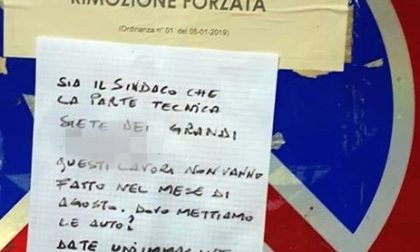 RIMOZIONE FORZATA
(Ordinanza n° 01 del 05-01-2019)
SIA IL SINDACO CHE
LA PARTE TECNICA
SIETE DEI GRANDI
QUESTI LAVORI NON VANNO
FATTO NEL MESE DI
AGOSTO. DOVE METTIAMO
LE AUTO?
DATE